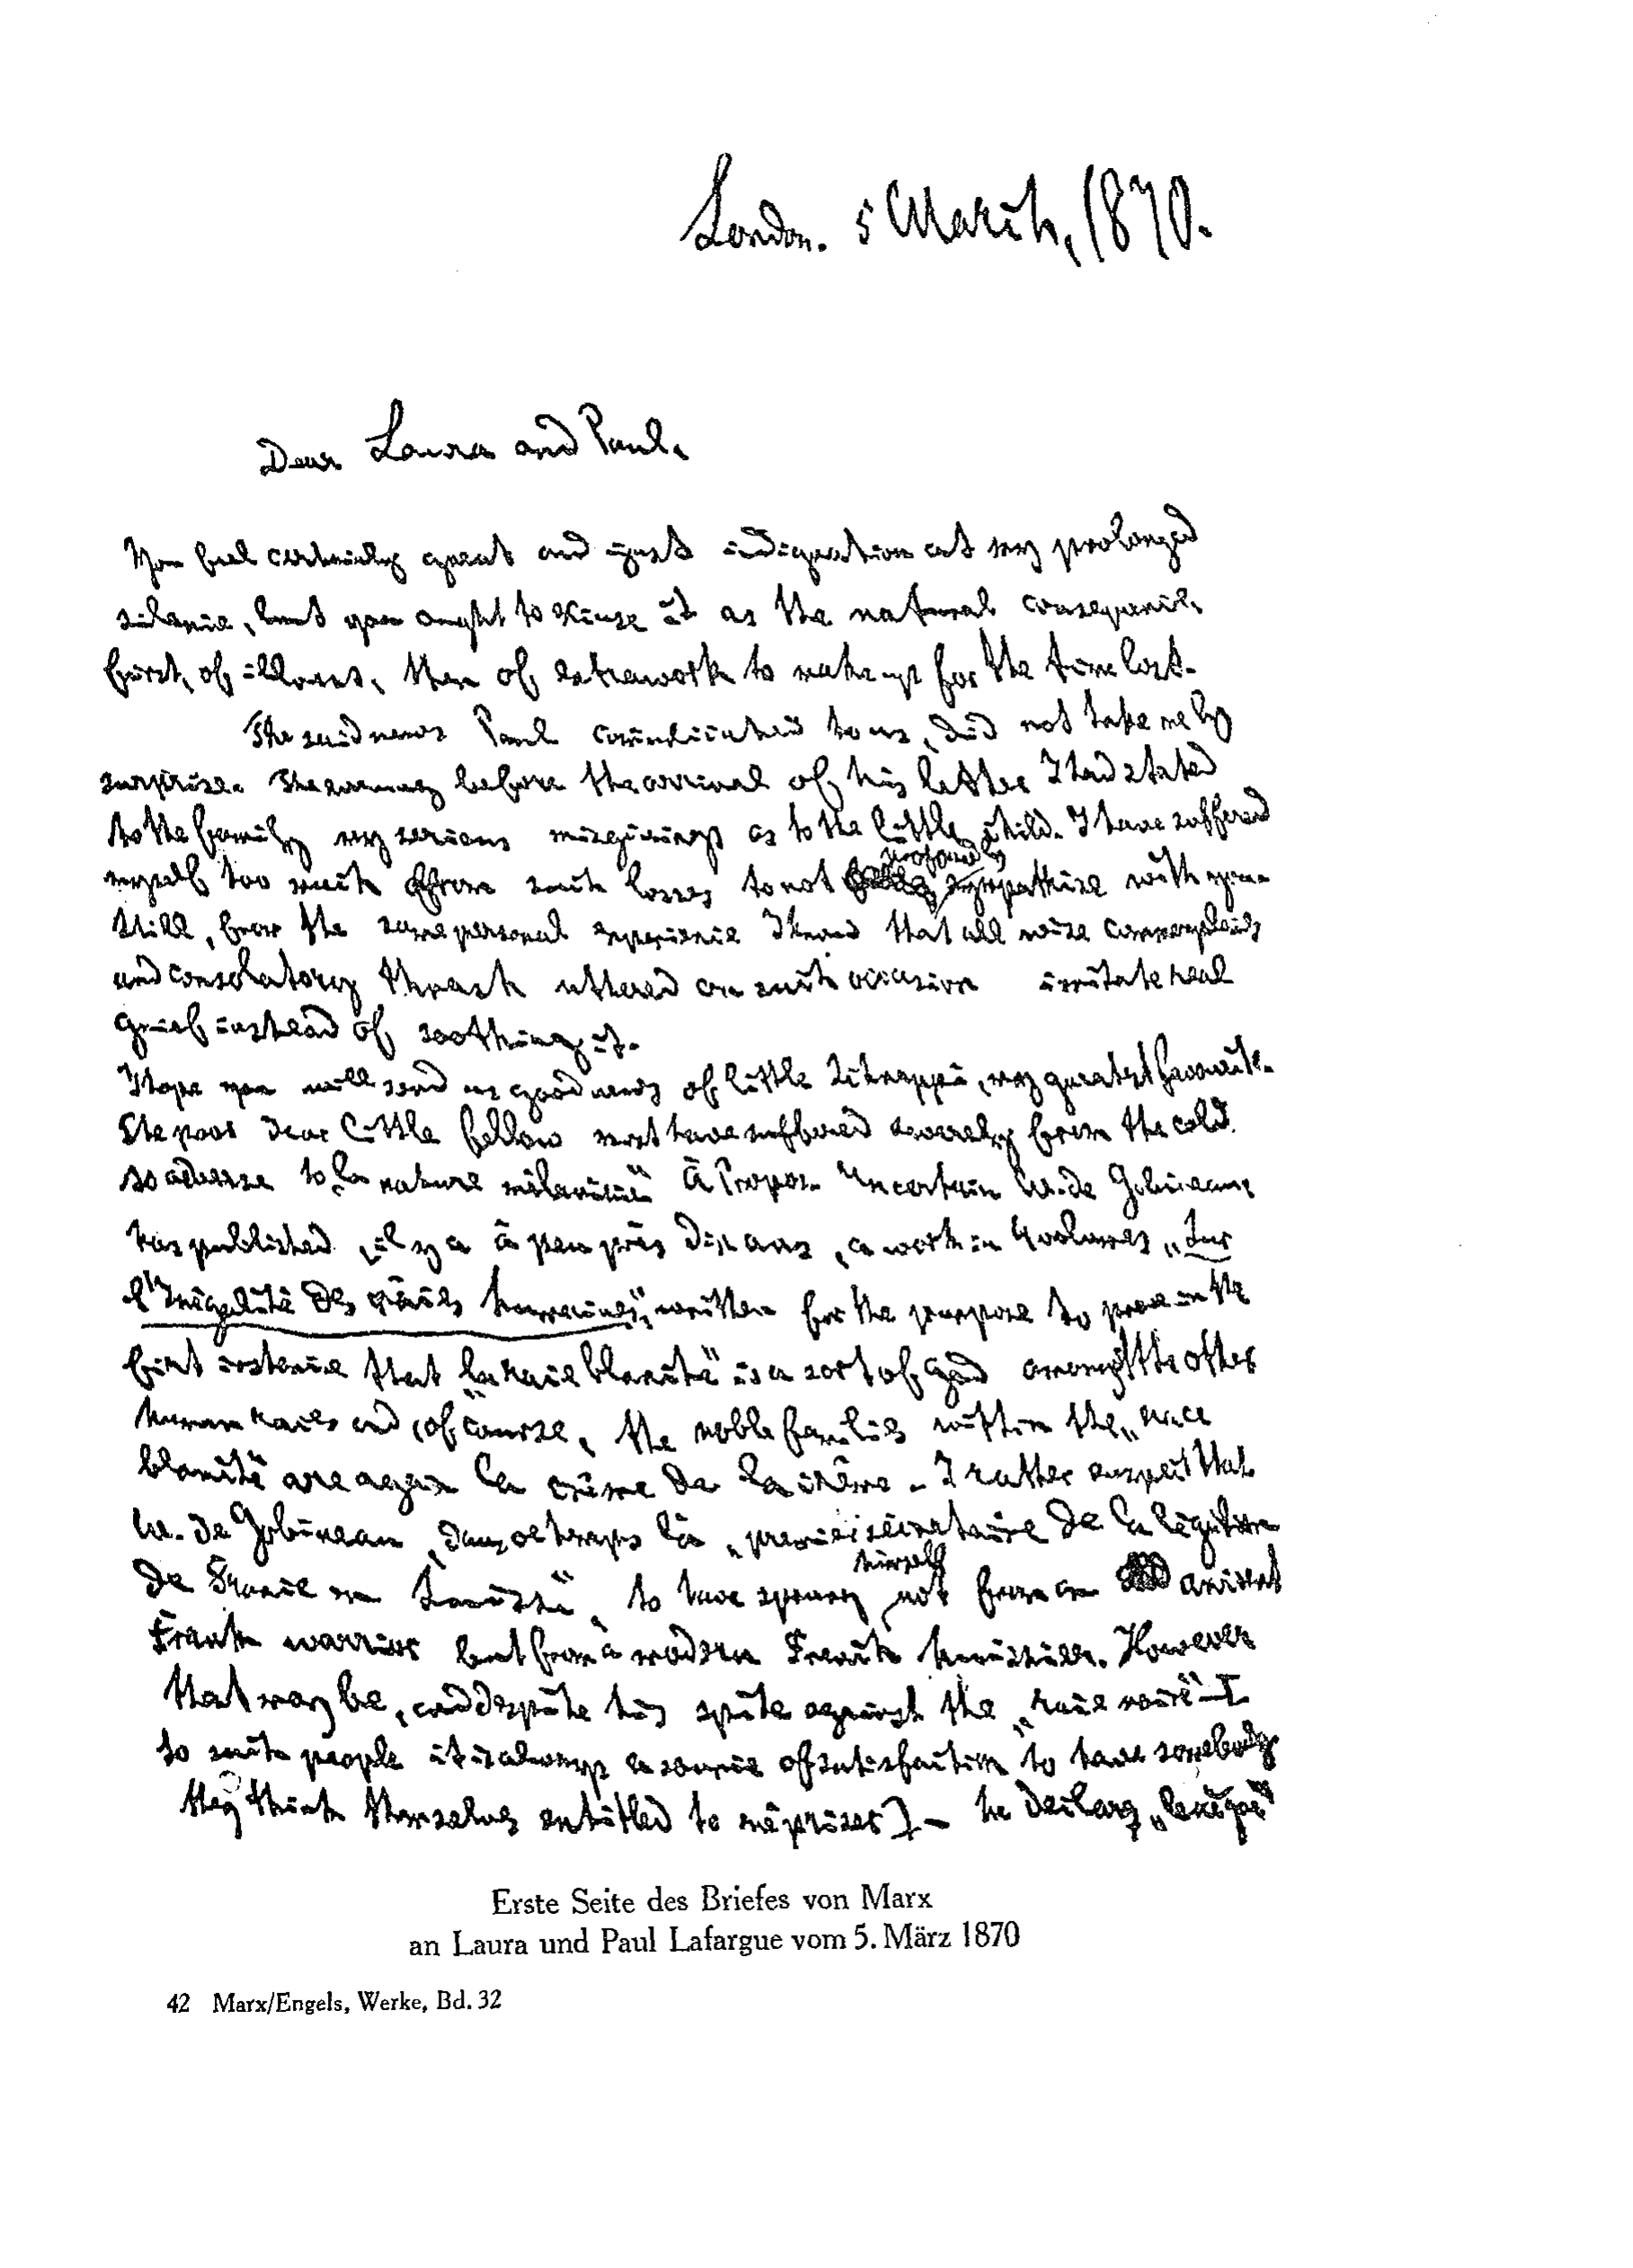 London. 5 March, 1870.
Dear Laura and Paul,
You feel certainly great and just indignation at my prolonged
silence, but you ought to excuse it as the natural consequence,
first, of illness, then of extrawork to make up for the time lost.
The sad news Paul communicated to us, did not take me by
surprise. The evening before the arrival of his letter I had stated
to the family my serious misgivings as to the little child. I have suffered
myself too much from such losses to not profoundly sympathise with you.
Still, from the same personal experience I know that all wise commonplaces
and consolatory trash uttered on such occasion irritate real
grief instead of soothing it.
I hope you will send us good news of little Schnappy, my greatest favourite.
The poor dear little fellow must have suffered severely from the cold
so adverse to „la nature mélanienne". À Propos. Un certain M. de Gobineau
has published, il y a à peu près dix ans, a work in 4 volumes „Sur
l'Inégalité des races humaines", written for the purpose to prove in the
first instance that „la race blanche" is a sort of God amongst the other
human races and, of course, the noble families within the „race
blanche" are again la crème de la crème. I rather suspect that
M. de Gobineau, dans ce temps là „premier secrétaire de la légation
de France en Suisse", to have sprung himself not from an ancient
Frank warrior but from a modern French huissier. However
that may be, and despite his spite against the „race noire" – [
to such people it is always a source of satisfaction to have somebody
they think themselves entitled to mépriser] – he declares „le nègre"
Erste Seite des Briefes von Marx
an Laura und Paul Lafargue vom 5. März 1870
42 Marx/Engels, Werke, Bd. 32